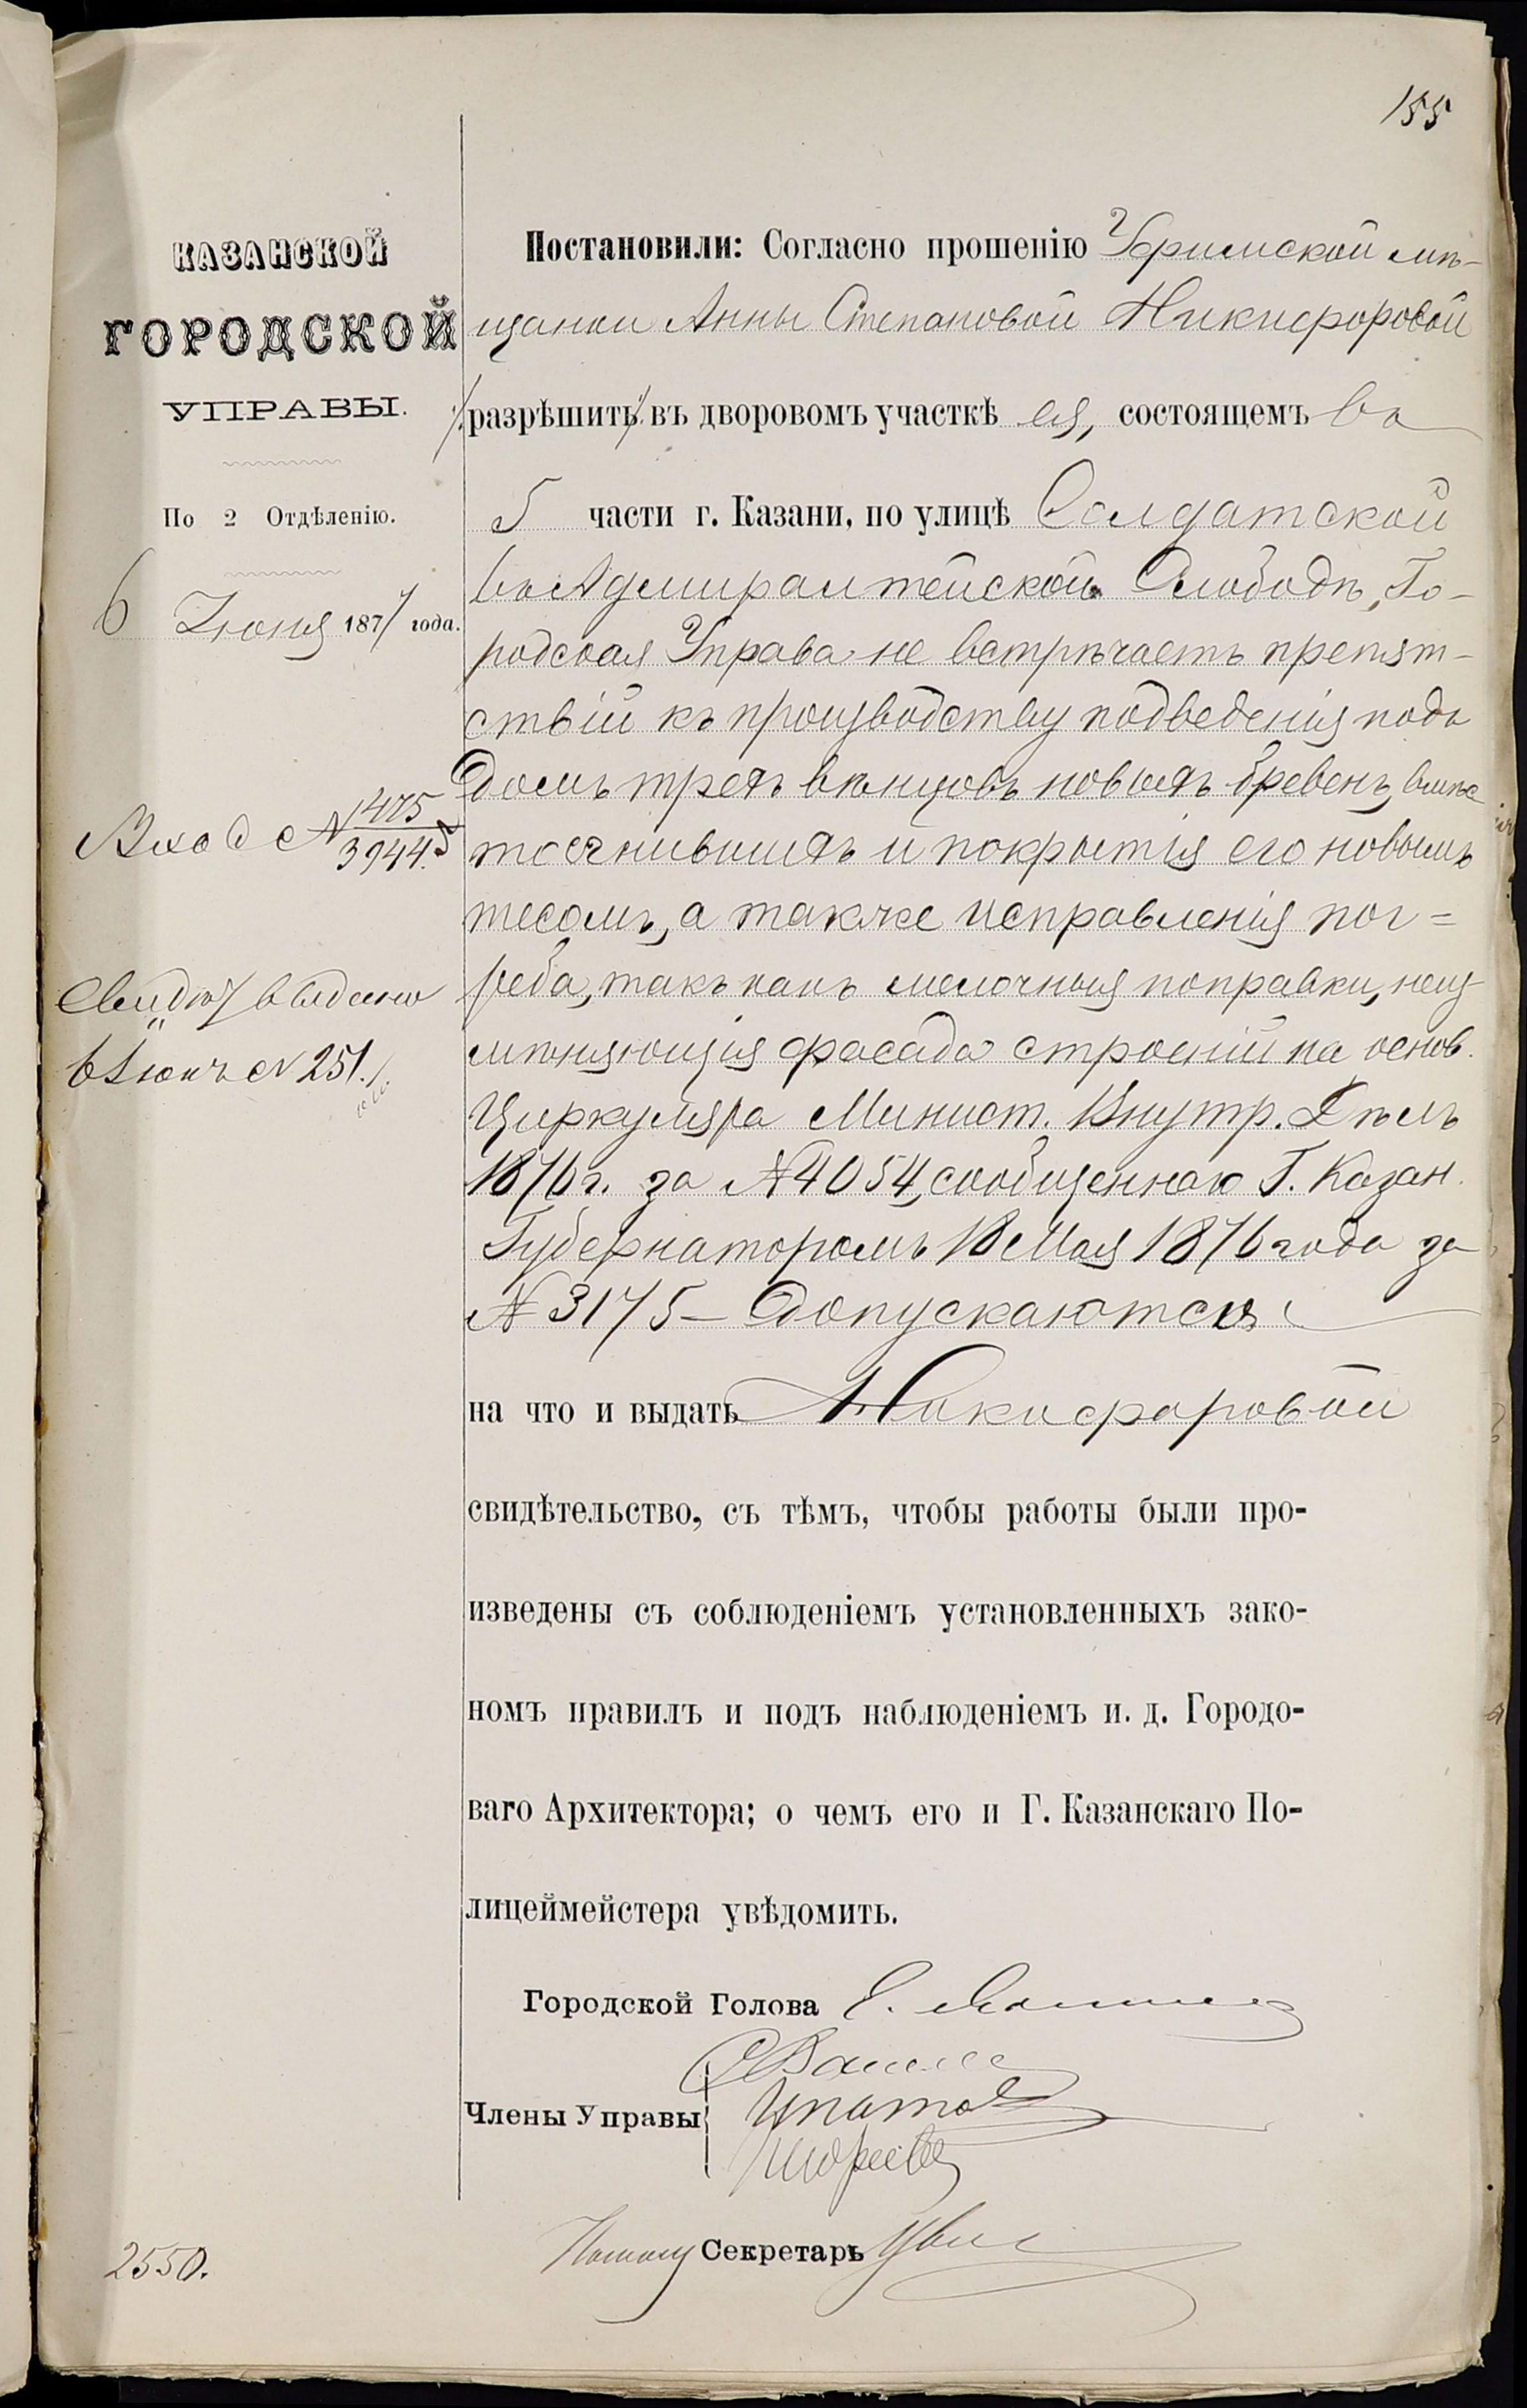 155
КАЗАНСКОЙ
ГОРОДСКОЙ
УПРАВЫ.
По 2 Отдѣленію.
6 Іюня 1877 года.
Вход №1475
3944.
Свидѣт выдано
6 Іюня № 251.
2550.
Постановили: Согласно прошенію Уфимской мѣ-
щанки Анны Степановой Никифоровой
разрѣшить въ дворовомъ участкѣ ея, состоящемъ въ
5 части г. Казани, по улицѣ Солдатской
въ Адмиралтейской Слободѣ, Го-
родская Управа не встрѣчаетъ препят-
ствій къ производству подведенія подъ
домъ трехъ вѣнцовъ новыхъ бревенъ, вмѣс
то сгнившихъ и покрытія его новымъ
тесомъ, а также исправленія пог=
реба, такъ какъ мелочныя поправки, неиз-
мѣняющія фасада строеній на основ.
Циркуляра Минист. Внутр. Дѣлъ
1876 г. за №4054, сообщеннаго Г. Казан.
Губернаторомъ 18 Мая 1876 года за
№ 3175 – допускаются
на что и выдать Никифоровой
свидѣтельство, съ тѣмъ, чтобы работы были про-
изведены съ соблюденіемъ установленныхъ зако-
номъ правилъ и подъ наблюденіемъ и. д. Городо-
ваго Архитектора; о чемъ его и Г. Казанскаго По-
лицеймейстера увѣдомить.
Городской Голова
Члены Управы
Ипатов
Секретарь